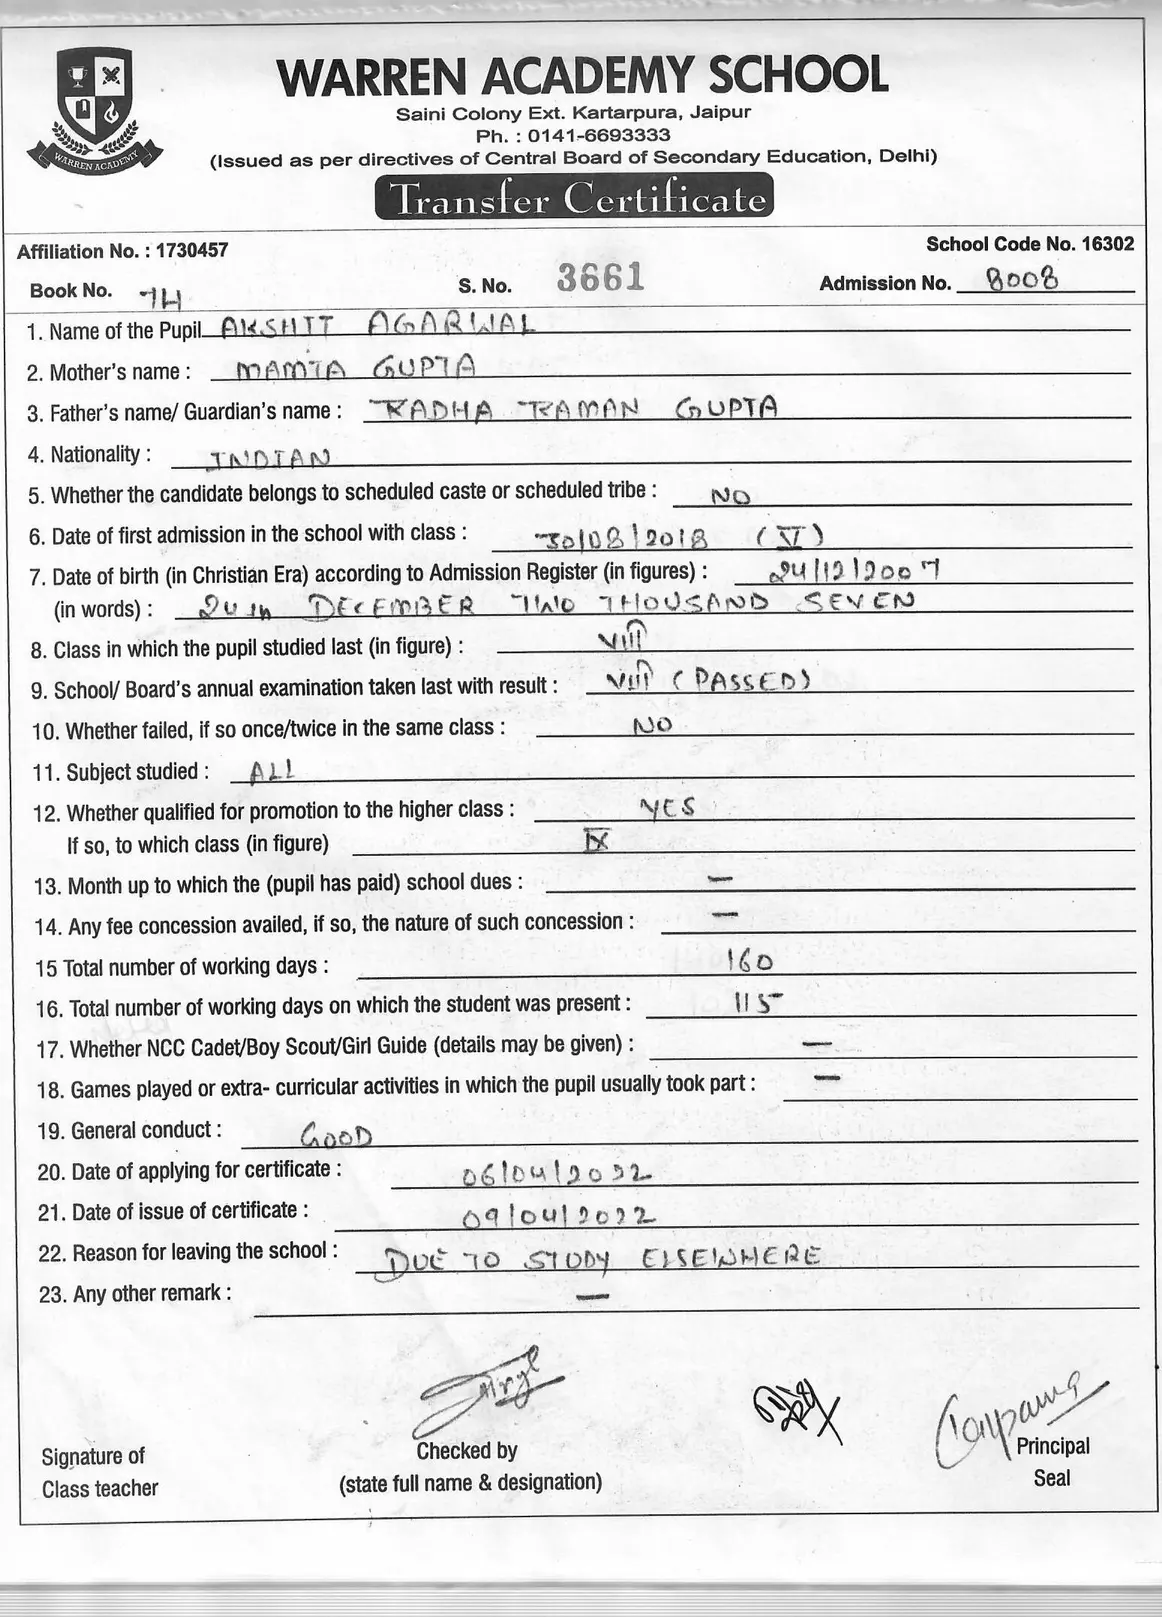 WARREN ACADEMY
WARREN ACADEMY SCHOOL
Saini Colony Ext. Kartarpura, Jaipur
Ph. : 0141-6693333
(Issued as per directives of Central Board of Secondary Education, Delhi)
Transfer Certificate
Affiliation No. : 1730457 School Code No. 16302
Book No. 74 S. No. 3661 Admission No. 8008
1. Name of the Pupil AKSHIT AGARWAL
2. Mother's name : MAMTA GUPTA
3. Father's name/ Guardian's name : RADHA RAMAN GUPTA
4. Nationality : INDIAN
5. Whether the candidate belongs to scheduled caste or scheduled tribe : NO
6. Date of first admission in the school with class : 30/08/2018 (V)
7. Date of birth (in Christian Era) according to Admission Register (in figures) : 24/12/2007
(in words) : 24th DECEMBER TWO THOUSAND SEVEN
8. Class in which the pupil studied last (in figure) : VIII
9. School/ Board's annual examination taken last with result : VIII (PASSED)
10. Whether failed, if so once/twice in the same class : NO
11. Subject studied : ALL
12. Whether qualified for promotion to the higher class : YES
If so, to which class (in figure) IX
13. Month up to which the (pupil has paid) school dues : —
14. Any fee concession availed, if so, the nature of such concession : —
15 Total number of working days : 160
16. Total number of working days on which the student was present : 115
17. Whether NCC Cadet/Boy Scout/Girl Guide (details may be given) : —
18. Games played or extra- curricular activities in which the pupil usually took part : —
19. General conduct : GOOD
20. Date of applying for certificate : 06/04/2022
21. Date of issue of certificate : 09/04/2022
22. Reason for leaving the school : DUE TO STUDY ELSEWHERE
23. Any other remark : —
Signature of Checked by Principal
Class teacher (state full name & designation) Seal